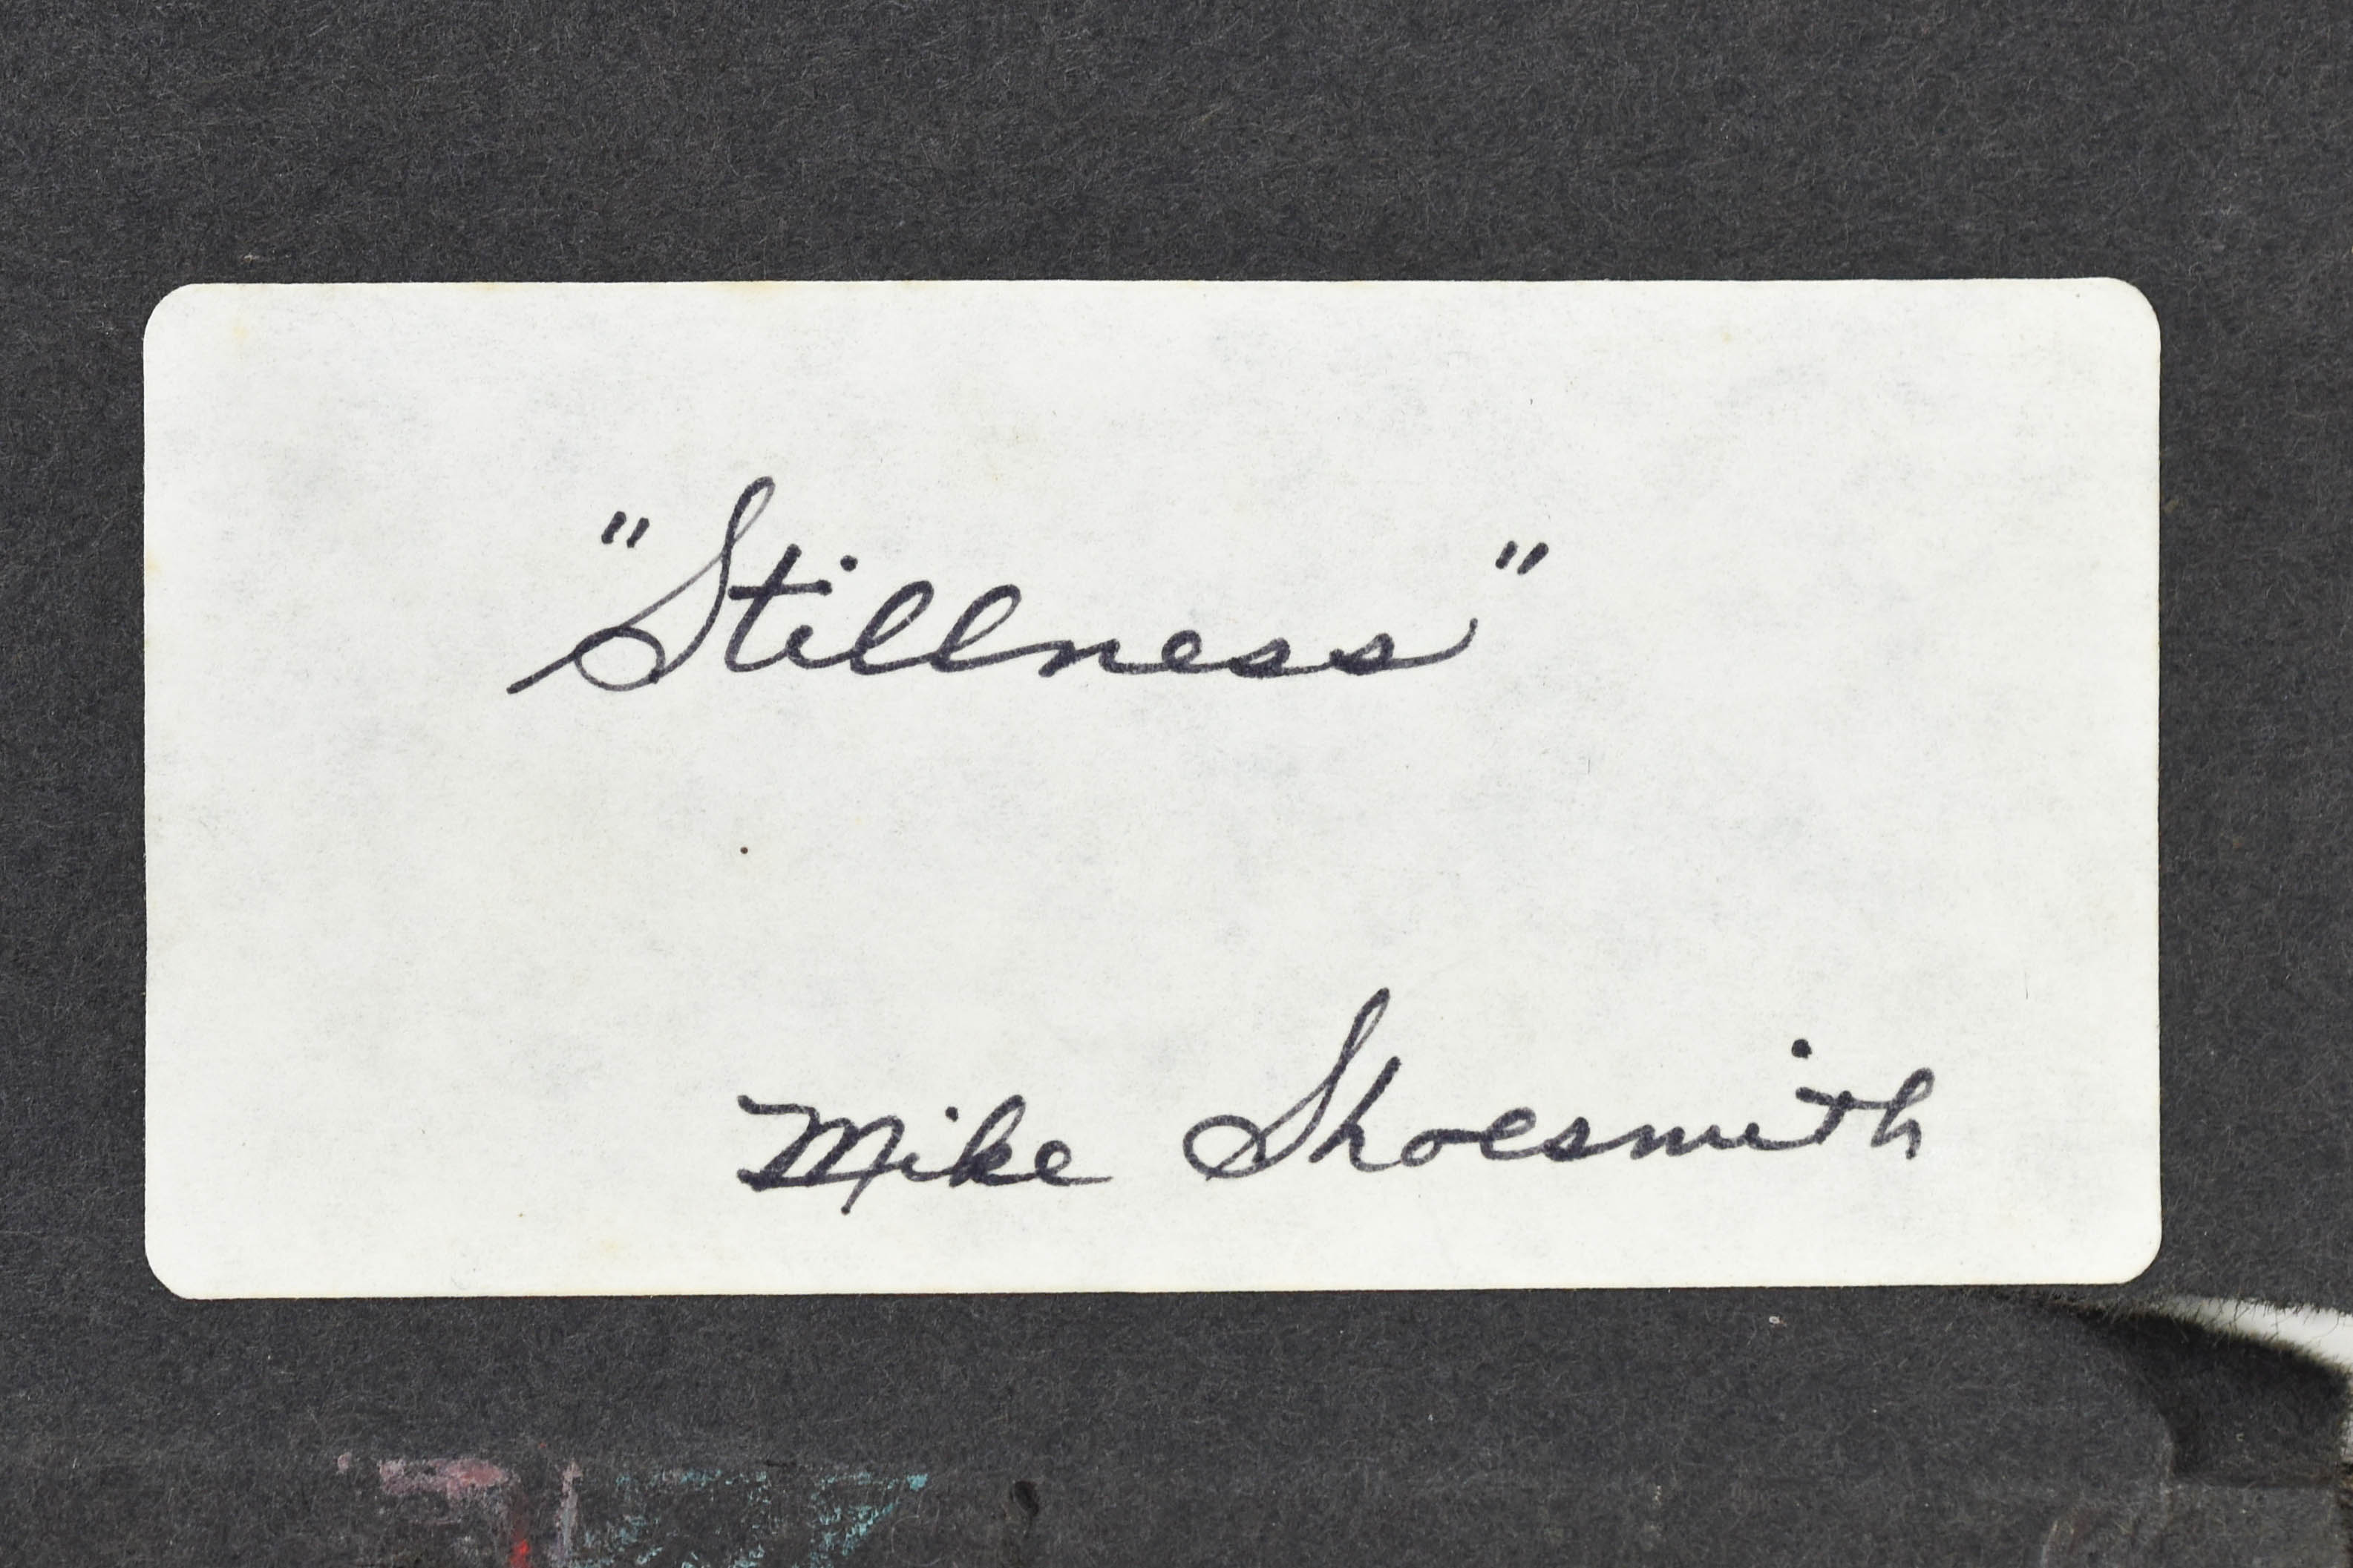 "Stillness"
Mike Shoesmith